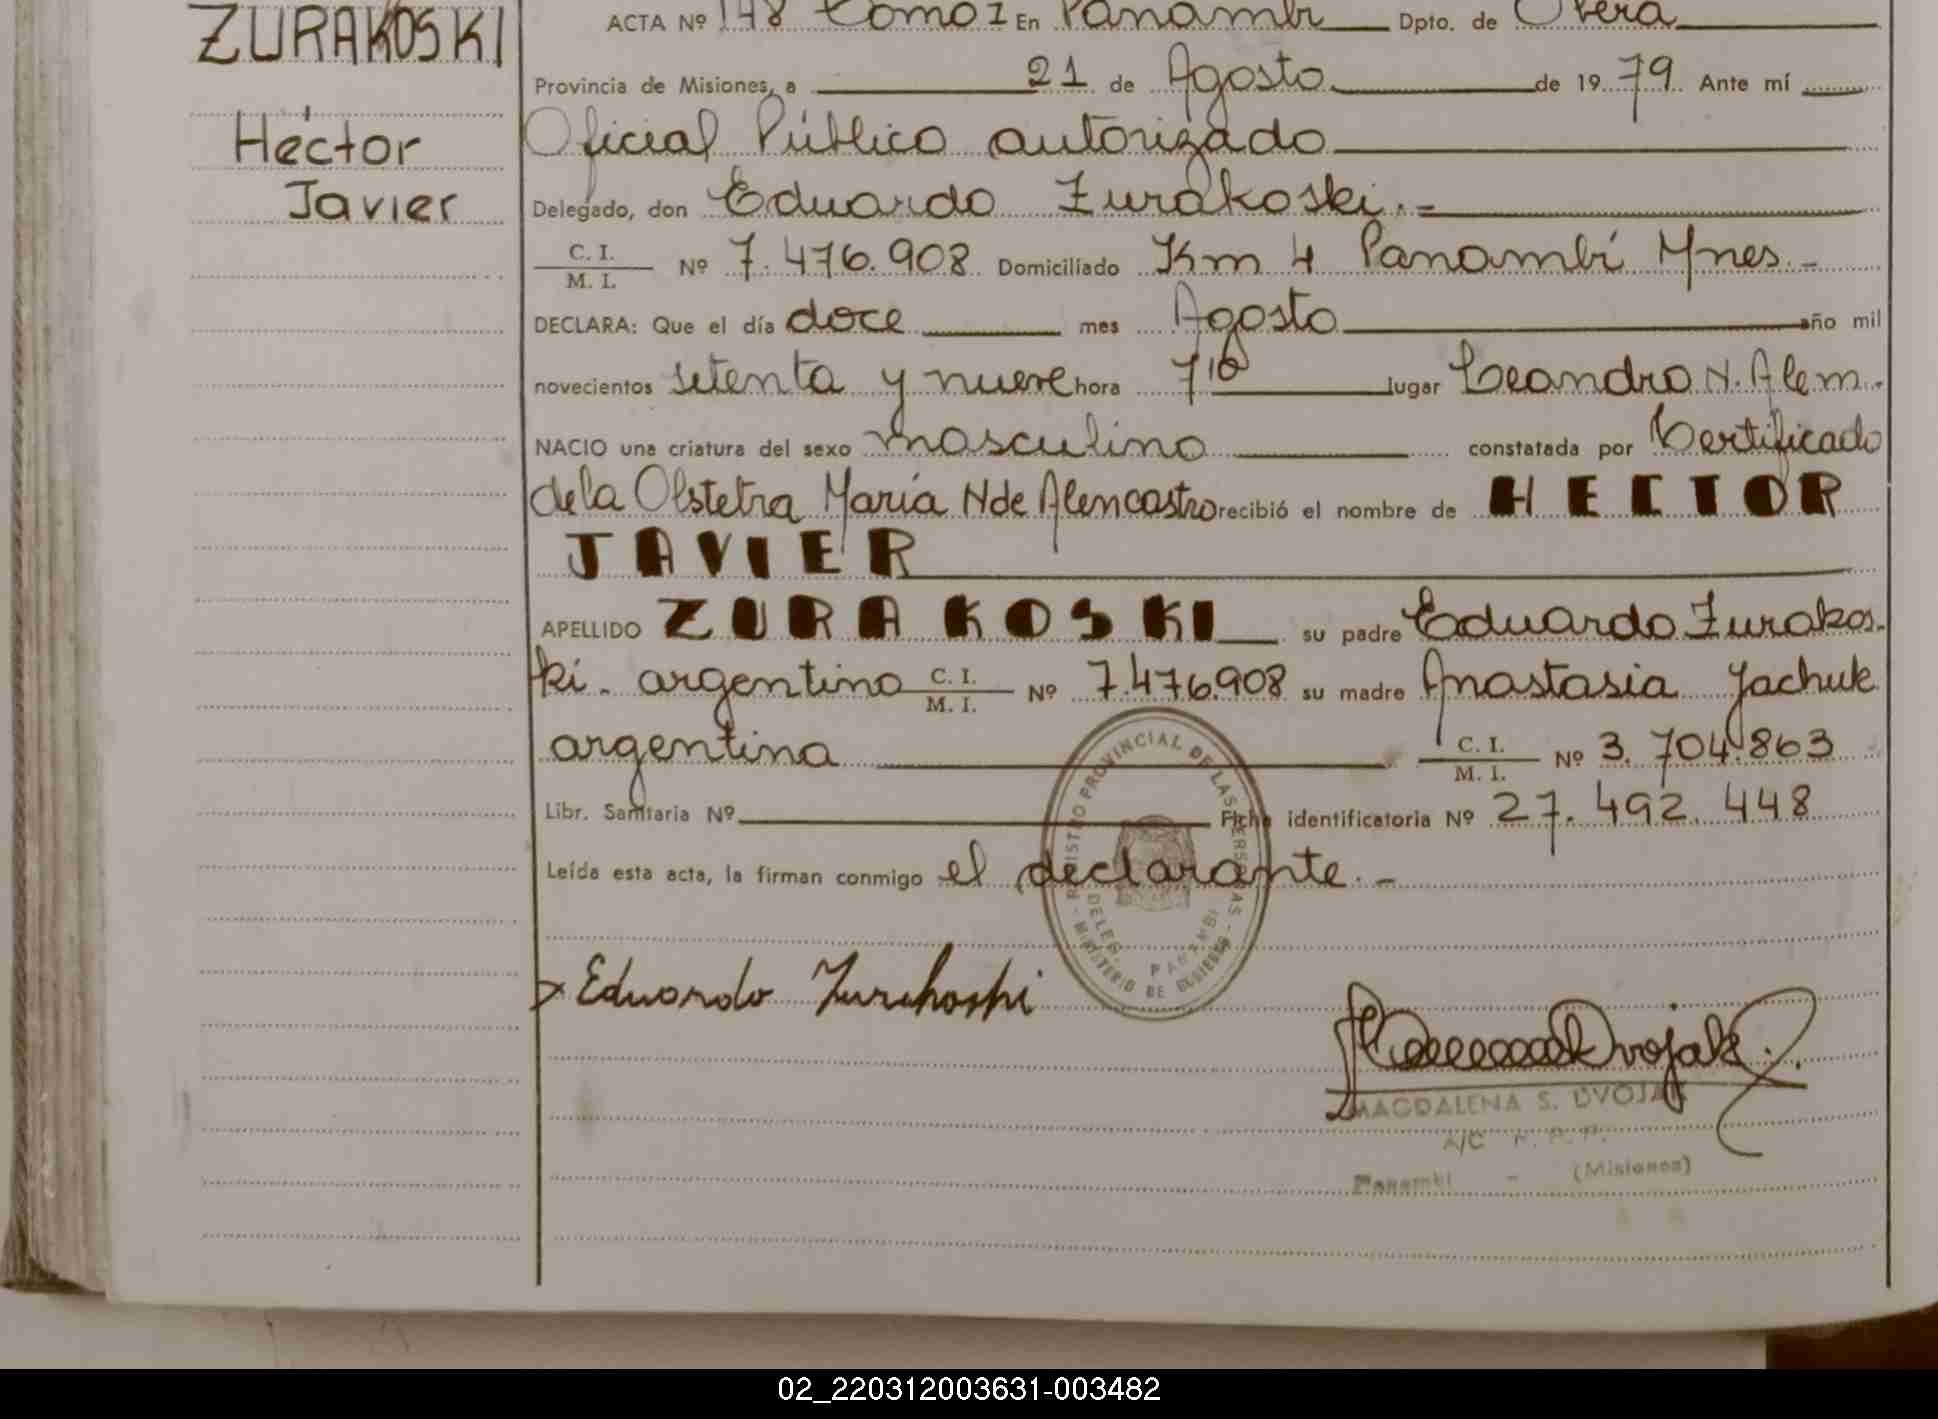 ZURAKOSKI
Héctor
Javier
ACTA Nº 148 Tomo I En Panambí Dpto. de Oberá
Provincia de Misiones, a 21 de Agosto de 1979. Ante mí
Oficial Público autorizado
Delegado, don Eduardo Zurakoski.-
C. I.
M. I. Nº 7.476.908 Domiciliado Km 4 Panambí Mnes.-
DECLARA: Que el día doce mes Agosto año mil
novecientos setenta y nueve hora 7 10 lugar Leandro N. Alem.
NACIO una criatura del sexo masculino constatada por Certificado
de la Obstetra María N de Alencastro recibió el nombre de HECTOR
JAVIER
APELLIDO ZURAKOSKI su padre Eduardo Zurakos-
ki. argentino C. I. M. I. Nº 7.476.908 su madre Anastasia Yachuk
argentina C. I. M. I. Nº 3.704.863
Libr. Sanitaria Nº Ficha identificatoria Nº 27.492.448
Leída esta acta, la firman conmigo el declarante.-
REGISTRO PROVINCIAL DE LAS PERSONAS - MINISTERIO DE GOBIERNO -
DELEG. PANAMBI
Eduardo Zurakoski
Dvojak
MAGDALENA S. DVOJAK
A/C R. P. P.
Panambí - (Misiones)
02_220312003631-003482